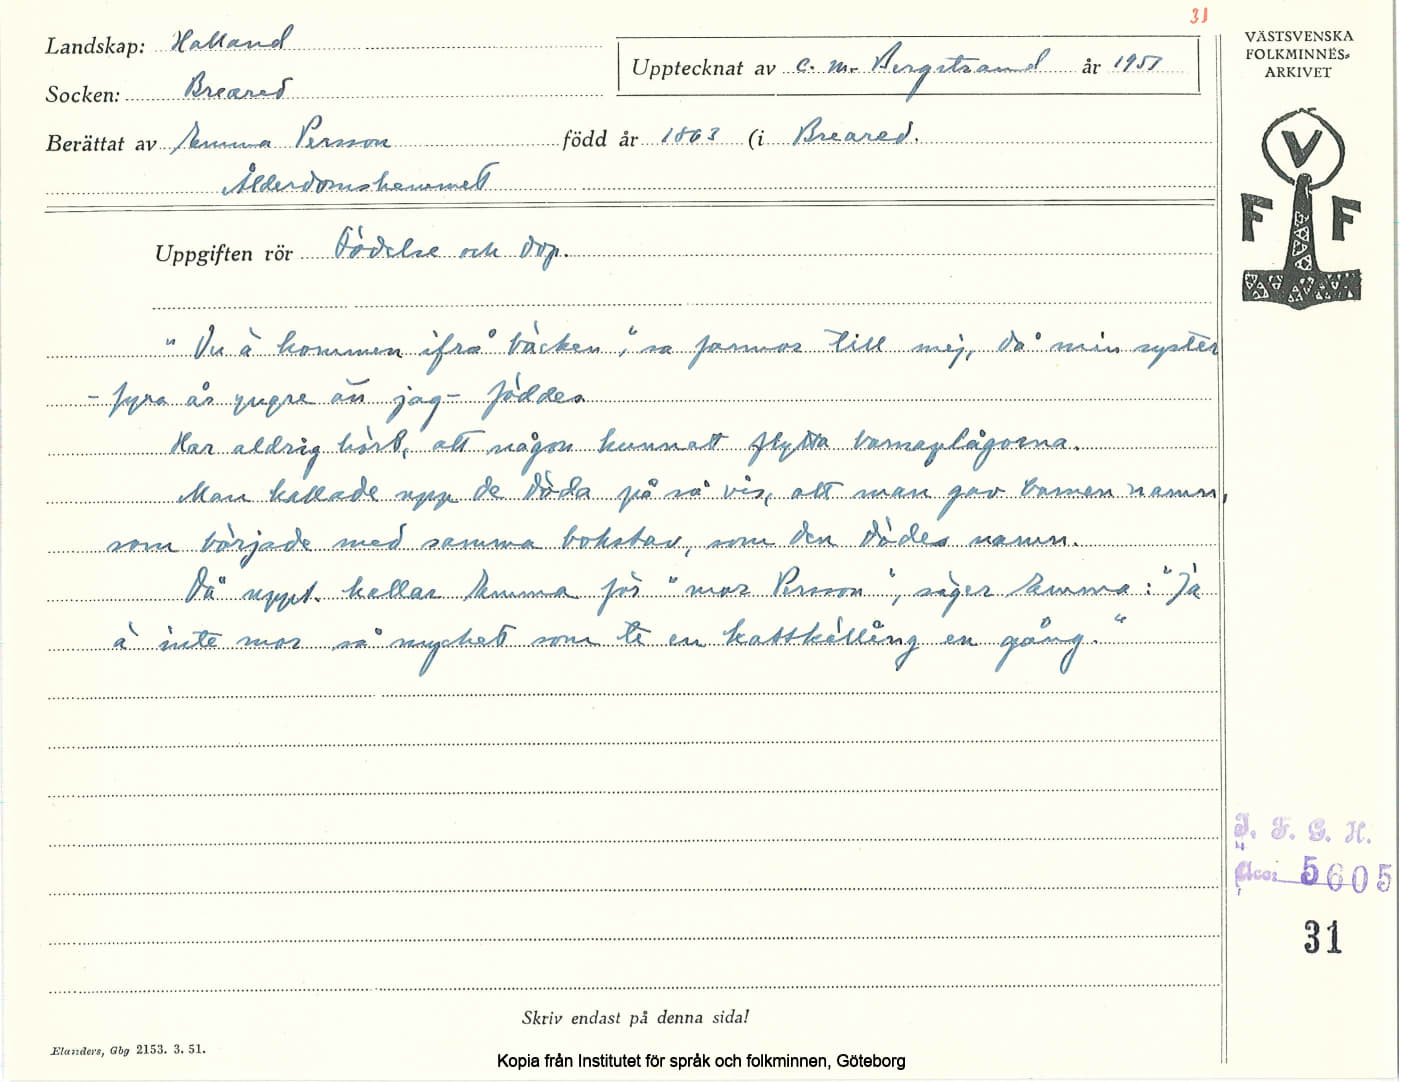 31
Landskap: Halland
Upptecknat av C. M. Bergstrand år 1951
VÄSTSVENSKA
FOLKMINNES-
ARKIVET
Socken: Breared
Berättat av Emma Persson född år 1863 (i Breared.
Ålderdomshemmet
V
F F
Uppgiften rör Födelse och dop.
"Du ä kommen ifrå bäcken," sa farmor till mej, då min syster
- fyra år yngre än jag - föddes
Har aldrig hört, att någon kunnat flytta barnaplågorna.
Man kallade upp de döda på så vis, att man gav barnen namn,
som började med samma bokstav, som den dödes namn.
Då uppt. kallar Emma för "mor Persson", säger Emma: "Ja
ä inte mor så mycket som te en kattkällång en gång."
I. F. G. H.
Acc: 5605
31
Skriv endast på denna sida!
Elanders, Gbg 2153. 3. 51.
Kopia från Institutet för språk och folkminnen, Göteborg